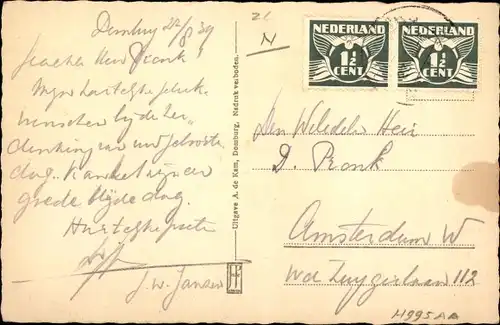 Domburg 22/8 39
Geachte Heer Pronk!
Mijn hartelijke geluk-
wenschen bij de her-
denking van uw geboorte
dag.
goede dag.
Hartelijke groeten
J. W. Jansen
Uitgave A. de Kam, Domburg. Nadruk verboden.
21
N
NEDERLAND
1½
CENT
NEDERLAND
1½
CENT
Den Weledelen Heer
D. Pronk
Amsterdam W
112
H995AA